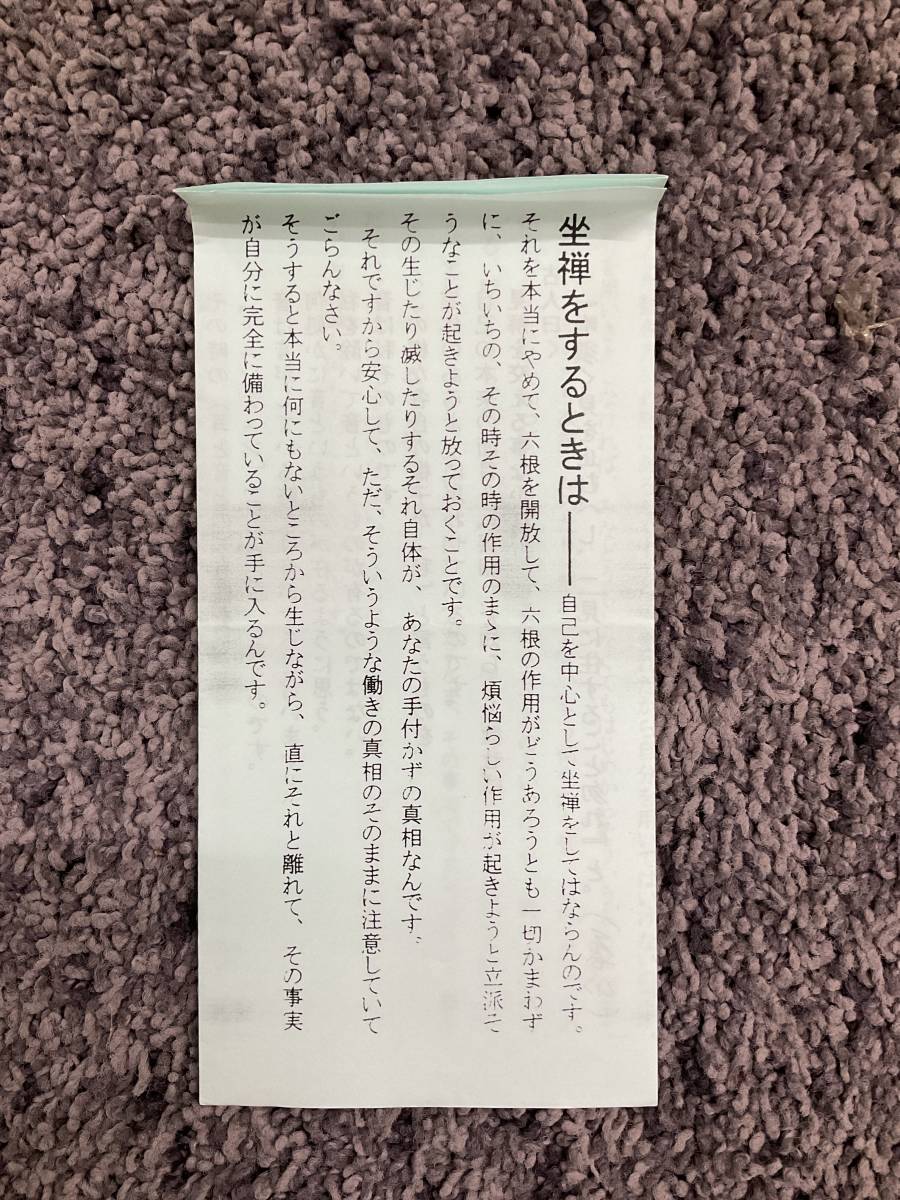 坐禅をするときは――自己を中心として坐禅をしてはならんのです。
それを本当にやめて、六根を開放して、六根の作用がどうあろうとも一切かまわず
に、いちいちの、その時その時の作用のまゝに、煩悩らしい作用が起きようと立派そ
うなことが起きようと放っておくことです。
その生じたり滅したりするそれ自体が、あなたの手付かずの真相なんです。
それですから安心して、ただ、そういうような働きの真相のそのままに注意していて
ごらんなさい。
そうすると本当に何にもないところから生じながら、直にそれと離れて、その事実
が自分に完全に備わっていることが手に入るんです。